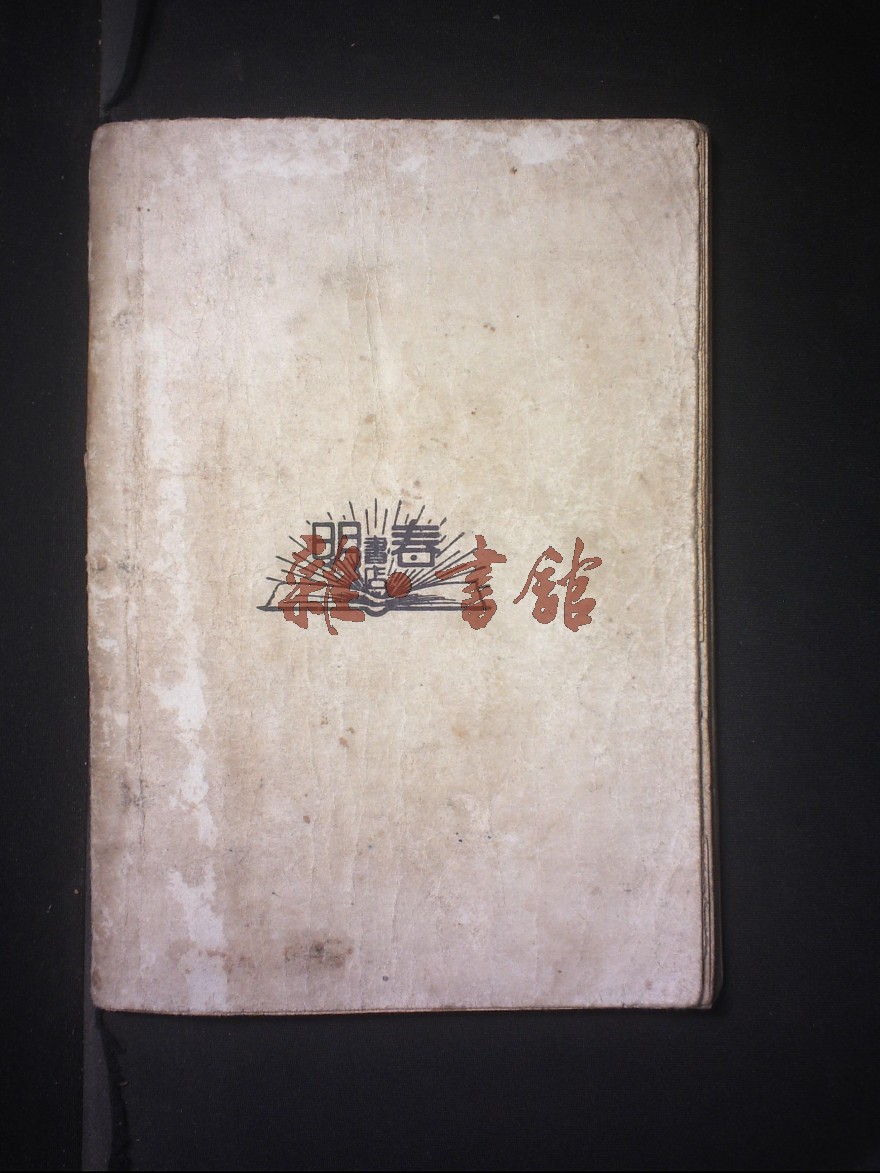 春明
書店
雜書館